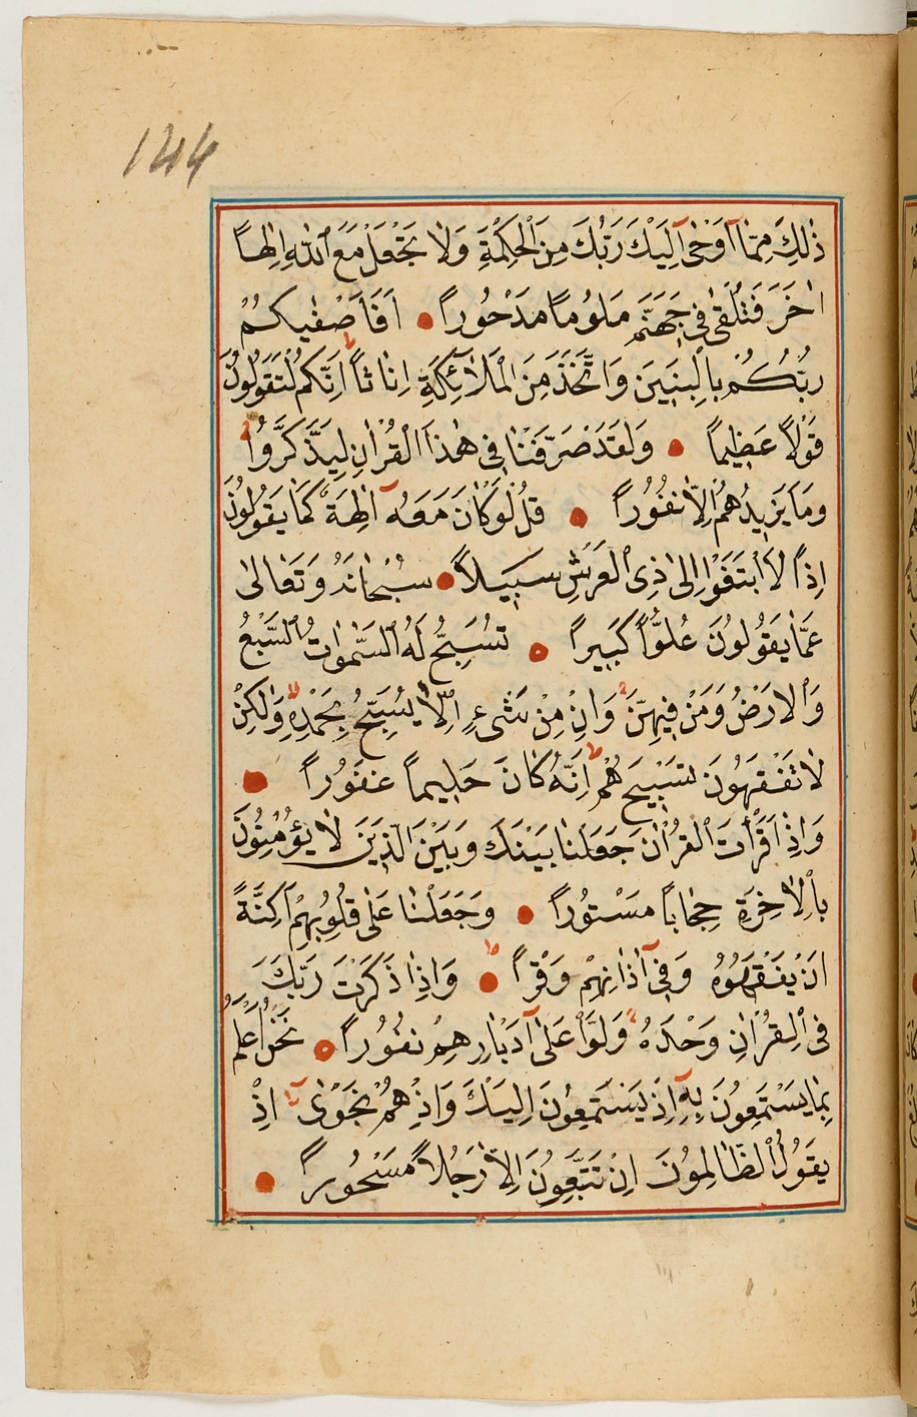 144
ذٰلِكَ مِمَّٓا اَوْحٰٓى اِلَيْكَ رَبُّكَ مِنَ الْحِكْمَةِ وَلَا تَجْعَلْ مَعَ اللّٰهِ اِلٰهًا
اٰخَرَ فَتُلْقٰى فٖى جَهَنَّمَ مَلُومًا مَدْحُورًا ۝ اَفَاَصْفٰيكُمْ
رَبُّكُمْ بِالْبَنٖينَ وَاتَّخَذَ مِنَ الْمَلٰٓائِكَةِ اِنَاثًا ط اِنَّكُمْ لَتَقُولُونَ
قَوْلًا عَظٖيمًا ۝ وَلَقَدْ صَرَّفْنَا فٖى هٰذَا الْقُرْاٰنِ لِيَذَّكَّرُوا ط
وَمَا يَزٖيدُهُمْ اِلَّا نُفُورًا ۝ قُلْ لَوْ كَانَ مَعَهُٓ اٰلِهَةٌ كَمَا يَقُولُونَ
اِذًا لَابْتَغَوْا اِلٰى ذِى الْعَرْشِ سَبٖيلًا ۝ سُبْحَانَهُ وَتَعَالٰى
عَمَّا يَقُولُونَ عُلُوًّا كَبٖيرًا ۝ تُسَبِّحُ لَهُ السَّمٰوَاتُ السَّبْعُ
وَالْاَرْضُ وَمَنْ فٖيهِنَّ ط وَاِنْ مِنْ شَىْءٍ اِلَّا يُسَبِّحُ بِحَمْدِهٖ وَلٰكِنْ
لَا تَفْقَهُونَ تَسْبٖيحَهُمْ ط اِنَّهُ كَانَ حَلٖيمًا غَفُورًا ۝
وَاِذَا قَرَأْتَ الْقُرْاٰنَ جَعَلْنَا بَيْنَكَ وَبَيْنَ الَّذٖينَ لَا يُؤْمِنُونَ
بِالْاٰخِرَةِ حِجَابًا مَسْتُورًا ۝ وَجَعَلْنَا عَلٰى قُلُوبِهِمْ اَكِنَّةً
اَنْ يَفْقَهُوهُ وَفٖٓى اٰذَانِهِمْ وَقْرًا ط ۝ وَاِذَا ذَكَرْتَ رَبَّكَ
فِى الْقُرْاٰنِ وَحْدَهُ وَلَّوْا عَلٰٓى اَدْبَارِهِمْ نُفُورًا ۝ نَحْنُ اَعْلَمُ
بِمَا يَسْتَمِعُونَ بِهٖٓ اِذْ يَسْتَمِعُونَ اِلَيْكَ وَاِذْ هُمْ نَجْوٰٓى اِذْ
يَقُولُ الظَّالِمُونَ اِنْ تَتَّبِعُونَ اِلَّا رَجُلًا مَسْحُورًا ۝